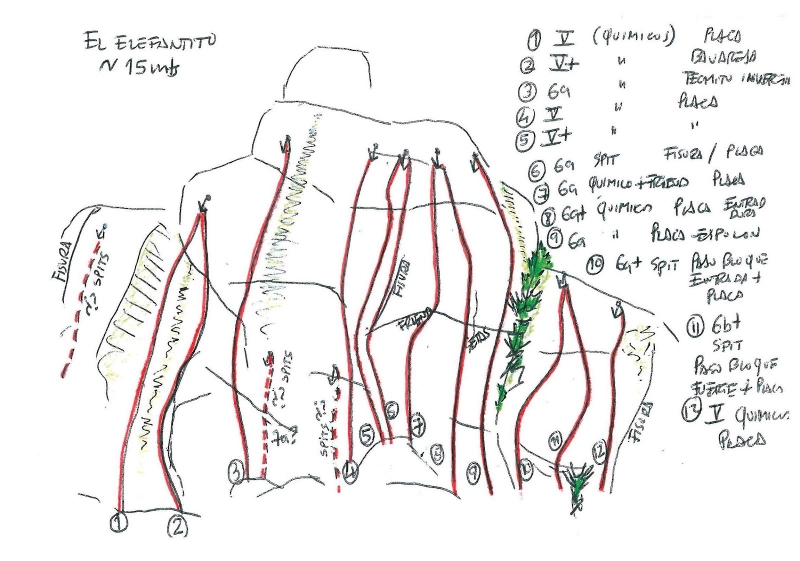 EL ELEFANTITO
~ 15 mts
① V (QUIMICOS) PLACA
② V+ " BAVARESA
TECHITO
③ 6a "
④ V " PLACA
⑤ V+ " "
⑥ 6a SPIT FISURA / PLACA
⑦ 6a QUIMICO + FRIEND PLACA
⑧ 6a+ QUIMICO PLACA ENTRADA
DURA
⑨ 6a " PLACA - ESPOLON
⑩ 6a+ SPIT PASO BLOQUE
ENTRADA +
PLACA
⑪ 6b+
SPIT
PASO BLOQUE
FUERTE + PLACA
V QUIMICO
PLACA
FISURA
SPITS
7a
SPITS
SPITS
FISURA
FRIEND
FISURA
①
②
③
④
⑤
⑥
⑦
⑧
⑨
⑩
⑪
⑫